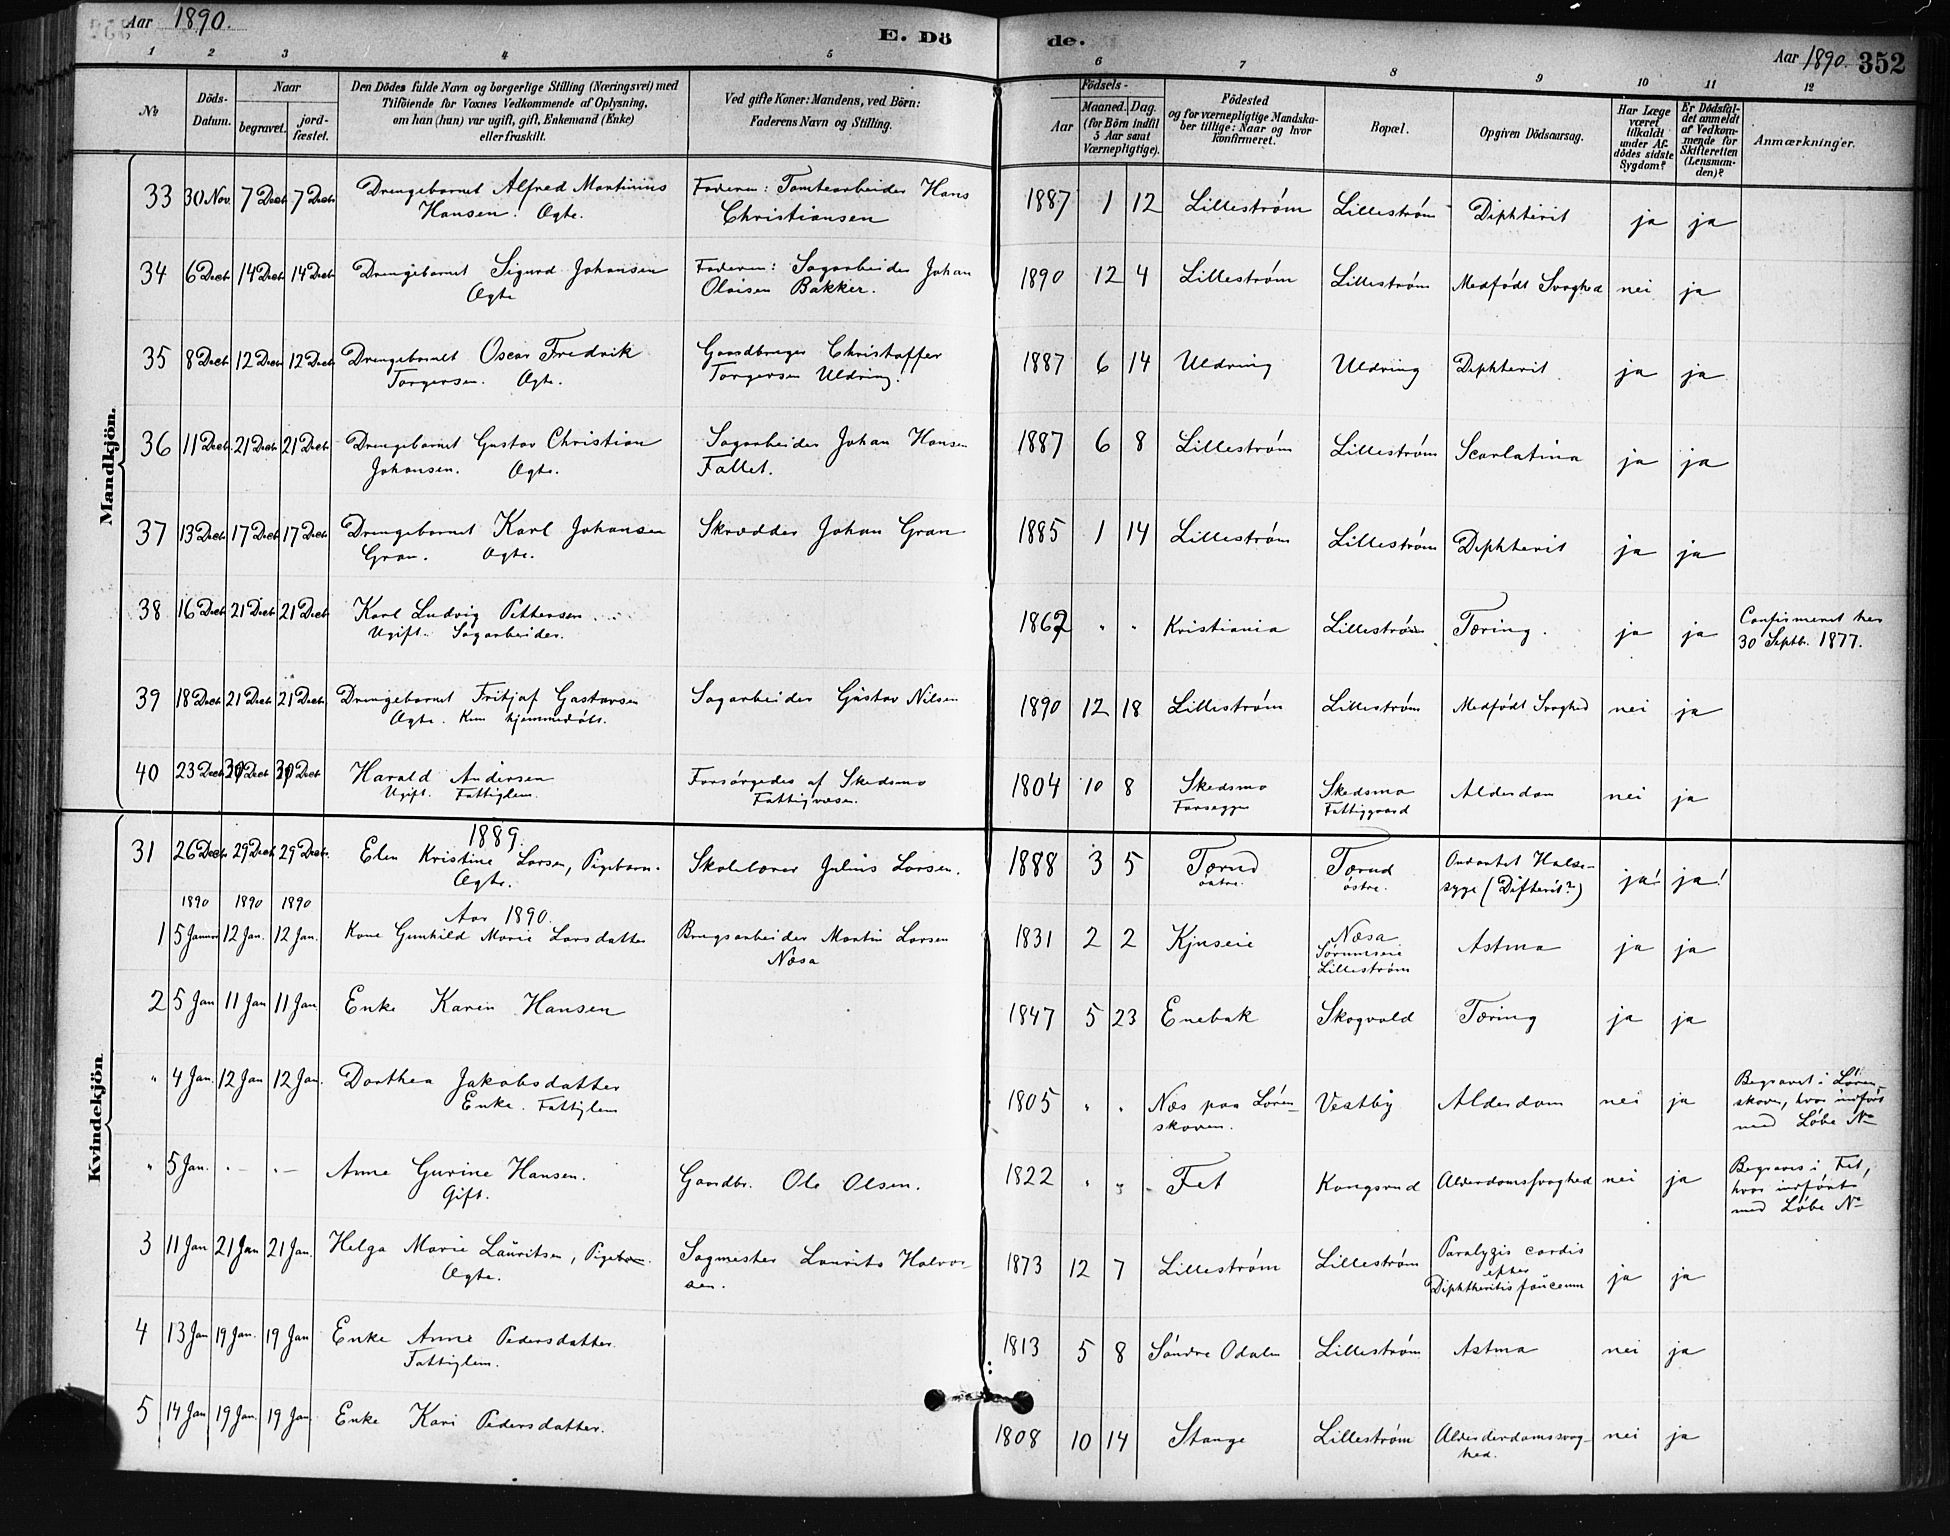 Aar 1890.
E. Dö de.
Aar 1890. 352
1 2 3 4 5 6 7 8 9 10 11 12
No
Döds-Datum.
Naar
begravet.
jordfæstet.
Den Dödes fulde Navn og borgerlige Stilling (Næringsvei) med
Tilföiende for Voxnes Vedkommende af Oplysning,
om han (hun) var ugift, gift, Enkemand (Enke)
eller fraskilt.
Ved gifte Koner: Mandens, ved Börn:
Faderens Navn og Stilling.
Födsels-
Aar
Maaned. Dag.
(for Börn indtil
5 Aar samt
Værnepligtige).
Födested
og for værnepligtige Mandskaber tillige: Naar og hvor
konfirmeret.
Bopæl.
Opgiven Dödsaarsag.
Har Læge
været
tilkaldt
under Afdödes sidste
Sygdom?
Er Dödsfaldet anmeldt
af Vedkommende for
Skifteretten
(Lensmanden)?
Anmærkninger.
Mandkjön.
33 30 Nov. 7 Decb 7 Decb Drengebarnet Alfred Martinius Faderen: Tomtearbeider Hans 1887 1 12 Lillestrøm Lillestrøm Diphterit ja ja
Hansen. Ægte. Christiansen
34 6 Decb 14 Decb 14 Decb Drengebarnet Sigurd Johansen Faderen: Sagarbeider Johan 1890 12 4 Lillestrøm Lillestrøm Medfødt Svaghed nei ja
Ægte Olaisen Bakker.
35 8 Decb 12 Decb 12 Decb Drengebarnet Oscar Fredrik Gaardbruger Christoffer 1887 6 14 Uldring Uldring Diphterit ja ja
Torgersen. Ægte. Torgersen Uldring.
36 11 Decb 21 Decb 21 Decb Drengebarnet Gustav Christian Sagarbeider Johan Hansen 1887 6 8 Lillestrøm Lillestrøm Scarlatina ja ja
Johansen. Ægte. Fallet.
37 13 Decb 17 Decb 17 Decb Drengebarnet Karl Johansen Skrædder Johan Gran 1885 1 14 Lillestrøm Lillestrøm Diphterit ja ja
Gran. Ægte.
38 16 Decb 21 Decb 21 Decb Karl Ludvig Pettersen 1862 " " Kristiania Lillestrøm Tæring. ja ja Confirmeret her
Ugift. Sagarbeider. 30 Septb. 1877.
39 18 Decb 21 Decb 21 Decb Drengebarnet Fritjof Gustavsen Sagarbeider Gustav Nilsen 1890 12 18 Lillestrøm Lillestrøm Medfødt Svaghed nei ja
Ægte. Kun hjemmedøbt.
40 23 Decb 30 Decb 30 Decb Harald Andersen Forsörgedes af Skedsmo 1804 10 8 Skedsmo Skedsmo Alderdom nei ja
Ugift. Fattiglem. Fattigvæsen. Farsegge Fattiggaard
Kvindekjön
1889.
31 26 Decb. 29 Decb 29 Decb. Elen Kristine Larsen, Pigebarn. Skolelærer Julius Larsen. 1888 3 5 Tærud Tærud Ondartet Halse- ja! ja!
Ægte. østre. östre. syge (Difterit?)
1890 1890 1890 Aar 1890.
1 5 Januar 12 Jan. 12 Jan. Kone Gunhild Marie Larsdatter Brugsarbeider Martin Larsen 1831 2 2 Kjuseie Næsa Astma ja ja
Næsa Sørumseie
Lillestrøm
2 5 Jan 11 Jan 11 Jan. Enke Karin Hansen 1847 5 23 Enebak Skogvold Tæring ja ja
" 4 Jan. 12 Jan 12 Jan. Dorthea Jakobsdatter 1805 " " Næs paa Lören- Vestby Alderdom nei ja Begravet i Lören-
Enke. Fattiglem skoven. skoven, hvor indført
med Löbe No
" 5 Jan. " — " — Anne Gurine Hansen. Gaardbr. Ole Olsen. 1822 " " Fet Kongsrud Alderdomssvaghed nei ja Begraves i Fet,
Gift. hvor indført
med Löbe No
3 11 Jan 21 Jan 21 Jan. Helga Marie Lauritsen, Pigebarn. Sagmester Laurits Halvor- 1873 12 7 Lillestrøm Lillestrøm Paralysis cordis ja ja
Ægte. sen. efter
Diphtheritis faucium
4 13 Jan 19 Jan. 19 Jan Enke Anne Pedersdatter. 1813 5 8 Söndre Odalen Lillestrøm Astma nei ja
Fattiglem.
5 14 Jan 19 Jan. 19 Jan. Enke Kari Pedersdatter. 1808 10 14 Stange Lillestrøm Alderderdomssvag- nei ja
hed.